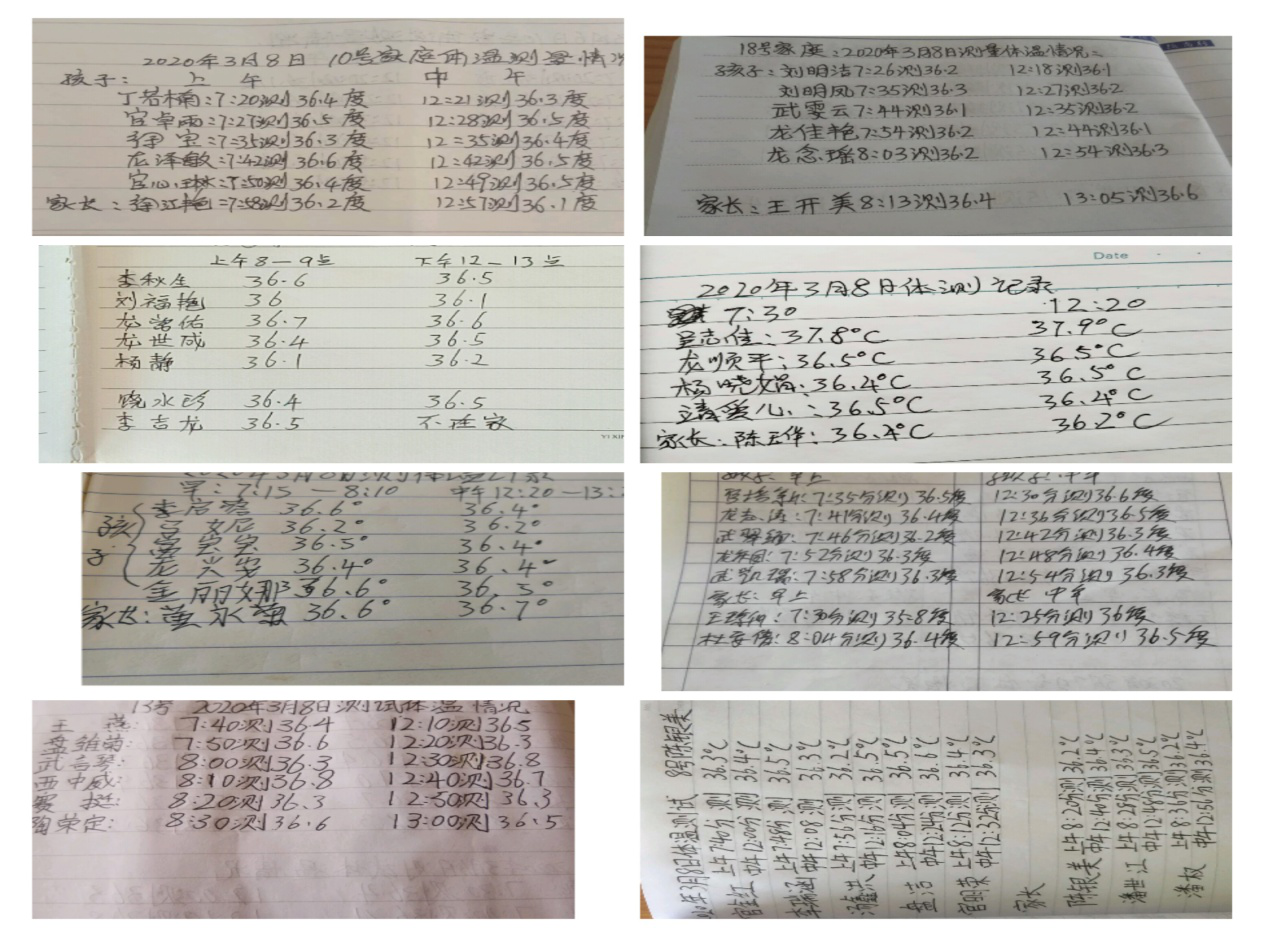 2020年3月8日 10号家庭体温测量情况
孩子: 上 午 中 午
丁若楠:7:20测36.4度 12:21测36.3度
官卓雨:7:27测36.5度 12:28测36.5度
宝:7:35测36.3度 12:35测36.4度
龙泽敏:7:42测36.6度 12:42测36.5度
官心琳:7:50测36.4度 12:49测36.5度
家长:徐江艳:7:58测36.2度 12:57测36.1度
18号家庭:2020年3月8日测量体温情况:
孩子:刘明洁7:26测36.2 12:18测36.1
刘明凤7:35测36.3 12:27测36.2
武雯云7:44测36.1 12:35测36.2
龙佳艳7:54测36.2 12:44测36.1
龙念瑶8:03测36.2 12:54测36.3
家长:王开美8:13测36.4 13:05测36.6
上午8-9点 下午12-13点
李秋生 36.6 36.5
刘福艳 36 36.1
龙佑 36.7 36.6
龙世成 36.4 36.5
杨静 36.1 36.2
饶水珍 36.4 36.5
李吉龙 36.5 不在家
Date
2020年3月8日体测记录
7:30 12:20
吴志佳:37.8°C 37.9°C
龙顺平:36.5°C 36.5°C
杨晓娟:36.4°C 36.5°C
爱心:36.5°C 36.4°C
家长:陈玉华:36.4°C 36.2°C
早:7:15-8:10 中午12:20-13:
孩子
李启 36.6° 36.4°
吕妮 36.2° 36.2°
宝宝 36.5° 36.4°
龙兴发 36.4° 36.4°
金丽娜 36.6° 36.5°
家长:董水菊 36.6° 36.7°
7:35分测36.5度 12:30分测36.6度
龙志涛:7:41分测36.4度 12:36分测36.5度
武:7:46分测36.2度 12:42分测36.3度
龙:7:52分测36.3度 12:48分测36.4度
武凯瑞:7:58分测36.3度 12:54分测36.3度
家长:早上 家长 中午
王:7:30分测35.8度 12:25分测36度
杜:8:04分测36.4度 12:59分测36.5度
13号 2020年3月8日测试体温情况
王燕: 7:40测36.4 12:10测36.5
盘维菊: 7:50测36.6 12:20测36.3
武吉琴: 8:00测36.3 12:30测36.8
西中威: 8:10测36.8 12:40测36.7
挺: 8:20测36.3 12:50测36.3
陶荣定: 8:30测36.6 13:00测36.5
年3月8日体温测试 8号陈银美
官红 上午7:40分测 36.3℃
中午12:00分测 36.4℃
李瑞涵 上午7:48分测 36.5℃
中午12:08分测 36.3℃
汤鑫洪 上午7:56分测 36.2℃
中午12:16分测 36.5℃
盘洁 上午8:04分测 36.5℃
中午12:24分测 36.6℃
官明荣 上午8:12分测 36.4℃
中午12:32分测 36.3℃
家长
陈银美 上午8:20分测36.2℃
中午12:40分测36.4℃
潘世江 上午8:28分测36.3℃
中午12:48分测36.5℃
潘权 上午8:36分测36.2℃
中午12:56分测36.4℃